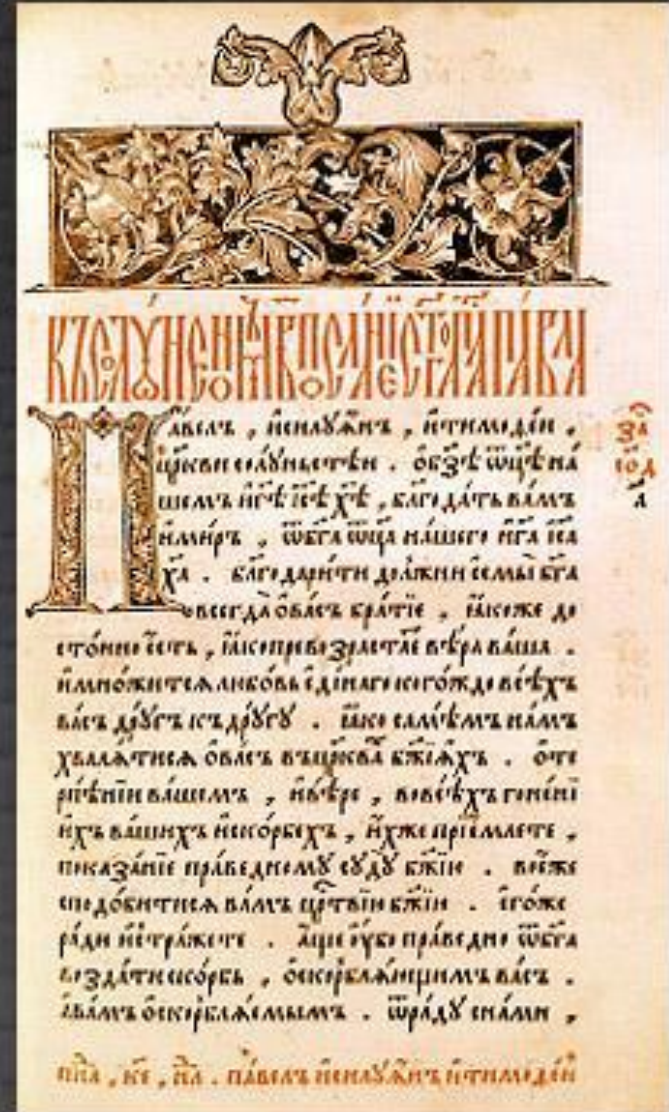 Па́велъ , и҆силꙋа́нъ , и҆тимоѳе́и ,
цр҃кви солꙋ́ньстѣи . ѡ҆бз҃ѣ ѿц҃ѣ на́
шемъ и҆гд҃ѣ і҆с҃ѣ х҃ѣ , бл҃года́ть ва́мъ
и҆ми́ръ , ѿбг҃а ѿц҃а на́шего и҆гд҃а і҆с҃а
х҃а . бл҃годари́ти до́лжни є҆смы̀ бг҃а
всегда̀ ѡ҆ва́съ бра́тїе , ꙗ҆́коже до
сто́ино є҆́сть , ꙗ҆́ко превозрастає вѣ́ра ва́ша .
и҆мно́житсѧ любо́вь є҆ди́наго кого́ждо все́хъ
ва́съ дрꙋ́гъ къ дрꙋ́гꙋ . ꙗ҆́ко самѣ́мъ на́мъ
хвали́тисѧ ѡ҆ва́съ въцр҃ква бж҃їѧхъ . ѡ҆те
рпѣ́нїи ва́шемъ , и҆вѣ́ре , вовсѣ́хъ гоне́нї
и҆хъ ва́шихъ и҆ско́рбехъ , и҆́хже прїе́млете ,
показа́нїе пра́ведномꙋ сꙋдꙋ̀ бж҃їю . воє҆́же
сподо́битисѧ ва́мъ цр҃твїю бж҃їю . є҆го́же
ра́ди и҆стра́жете . а҆́ще ᲂу҆́бо пра́ведно ѿбг҃а
возда́ти ско́рбь , ѡ҆скорблѧ́ющимъ ва́съ .
а҆ва́мъ ѡ҆скорблѧ́емымъ . ѿра́дꙋ сна́ми ,
па́велъ и҆силꙋа́нъ и҆тимоѳе́и